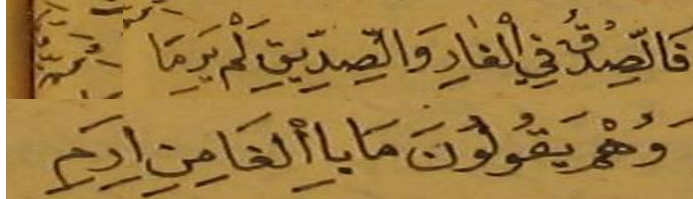 فَالصِّدْقُ فِي الْغَارِ وَالصِّدِّيقِ لَمْ يَرِمَا
وَهُمْ يَقُولُونَ مَا بِاالْغَا مِنِ ارِمِ